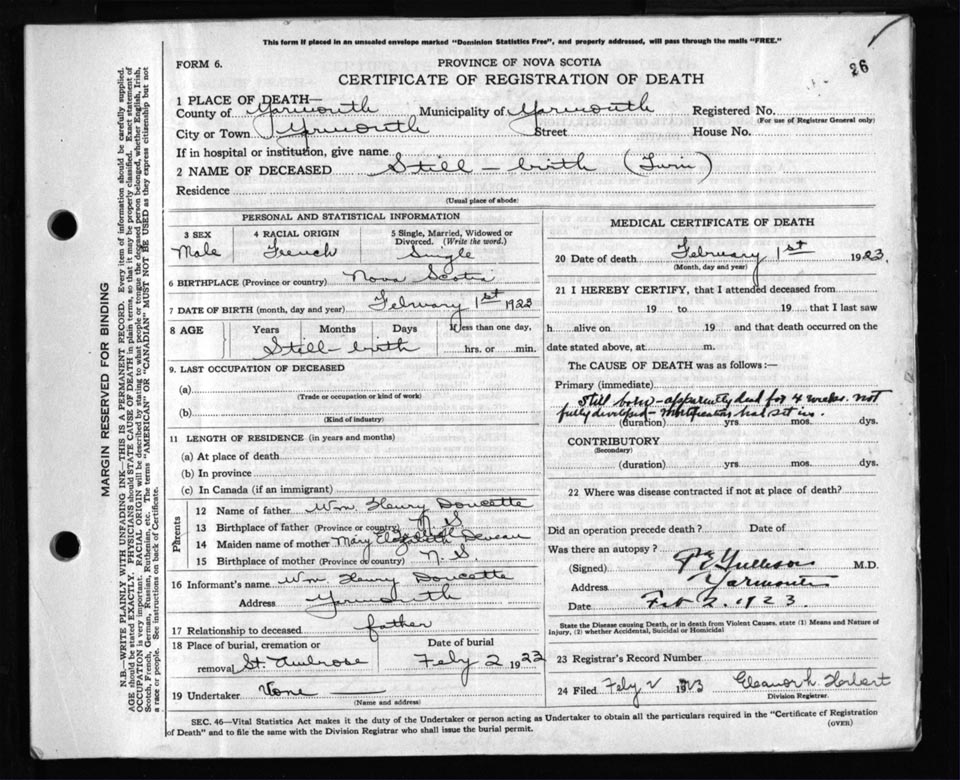 This form if placed in an unsealed envelope marked "Dominion Statistics Free", and properly addressed, will pass through the mails "FREE."
26
FORM 6.
PROVINCE OF NOVA SCOTIA
CERTIFICATE OF REGISTRATION OF DEATH
1 PLACE OF DEATH—
County of Yarmouth Municipality of Yarmouth Registered No.
(For use of Registrar General only)
City or Town Yarmouth Street House No.
If in hospital or institution, give name
2 NAME OF DECEASED Still - birth (Twin)
Residence
(Usual place of abode)
PERSONAL AND STATISTICAL INFORMATION
3 SEX 4 RACIAL ORIGIN 5 Single, Married, Widowed or
Divorced. (Write the word.)
Male French Single
6 BIRTHPLACE (Province or country) Nova Scotia
7 DATE OF BIRTH (month, day and year) February 1st 1923
8 AGE Years Months Days If less than one day,
Still-birth hrs. or min.
9. LAST OCCUPATION OF DECEASED
(a)
(Trade or occupation or kind of work)
(b)
(Kind of industry)
11 LENGTH OF RESIDENCE (in years and months)
(a) At place of death
(b) In province
(c) In Canada (if an immigrant)
Parents
12 Name of father Wm. Henry Doucette
13 Birthplace of father (Province or country) N. S
14 Maiden name of mother Mary Elizabeth Deveau
15 Birthplace of mother (Province or country) N. S
16 Informant's name Wm Henry Doucette
Address Yarmouth
17 Relationship to deceased father
18 Place of burial, cremation or Date of burial
removal St. Ambrose Feby 2 1923
19 Undertaker None
(Name and address)
MEDICAL CERTIFICATE OF DEATH
20 Date of death February 1st 1923.
(Month, day and year)
21 I HEREBY CERTIFY, that I attended deceased from
19 to 19 that I last saw
h alive on 19 and that death occurred on the
date stated above, at m.
The CAUSE OF DEATH was as follows:—
Primary (immediate)
Still born - apparently dead for 4 weeks. not
fully developed - mortification had set in.
(duration) yrs. mos. dys.
CONTRIBUTORY
(Secondary)
(duration) yrs. mos. dys.
22 Where was disease contracted if not at place of death?
Did an operation precede death? Date of
Was there an autopsy?
(Signed) M.D.
Address Yarmouth
Date Feb 2. 1923
State the Disease causing Death, or in death from Violent Causes, state (1) Means and Nature of
Injury, (2) whether Accidental, Suicidal or Homicidal
23 Registrar's Record Number
24 Filed Feby 2 1923 Eleanor L. Herbert
Division Registrar.
SEC. 46—Vital Statistics Act makes it the duty of the Undertaker or person acting as Undertaker to obtain all the particulars required in the "Certificate of Registration
of Death" and to file the same with the Division Registrar who shall issue the burial permit.
(OVER)
MARGIN RESERVED FOR BINDING
N.B.—WRITE PLAINLY WITH UNFADING INK—THIS IS A PERMANENT RECORD. Every item of information should be carefully supplied.
AGE should be stated EXACTLY. PHYSICIANS should STATE CAUSE OF DEATH in plain terms, so that it may be properly classified. Exact statement of
OCCUPATION is very important. RACIAL ORIGIN will be described by stating to what people or tongue the deceased person belonged, whether English, Irish,
Scotch, French, German, Russian, Ruthenian, etc. The terms "AMERICAN" OR "CANADIAN" MUST NOT BE USED as they express citizenship but not
a race or people. See instructions on back of Certificate.